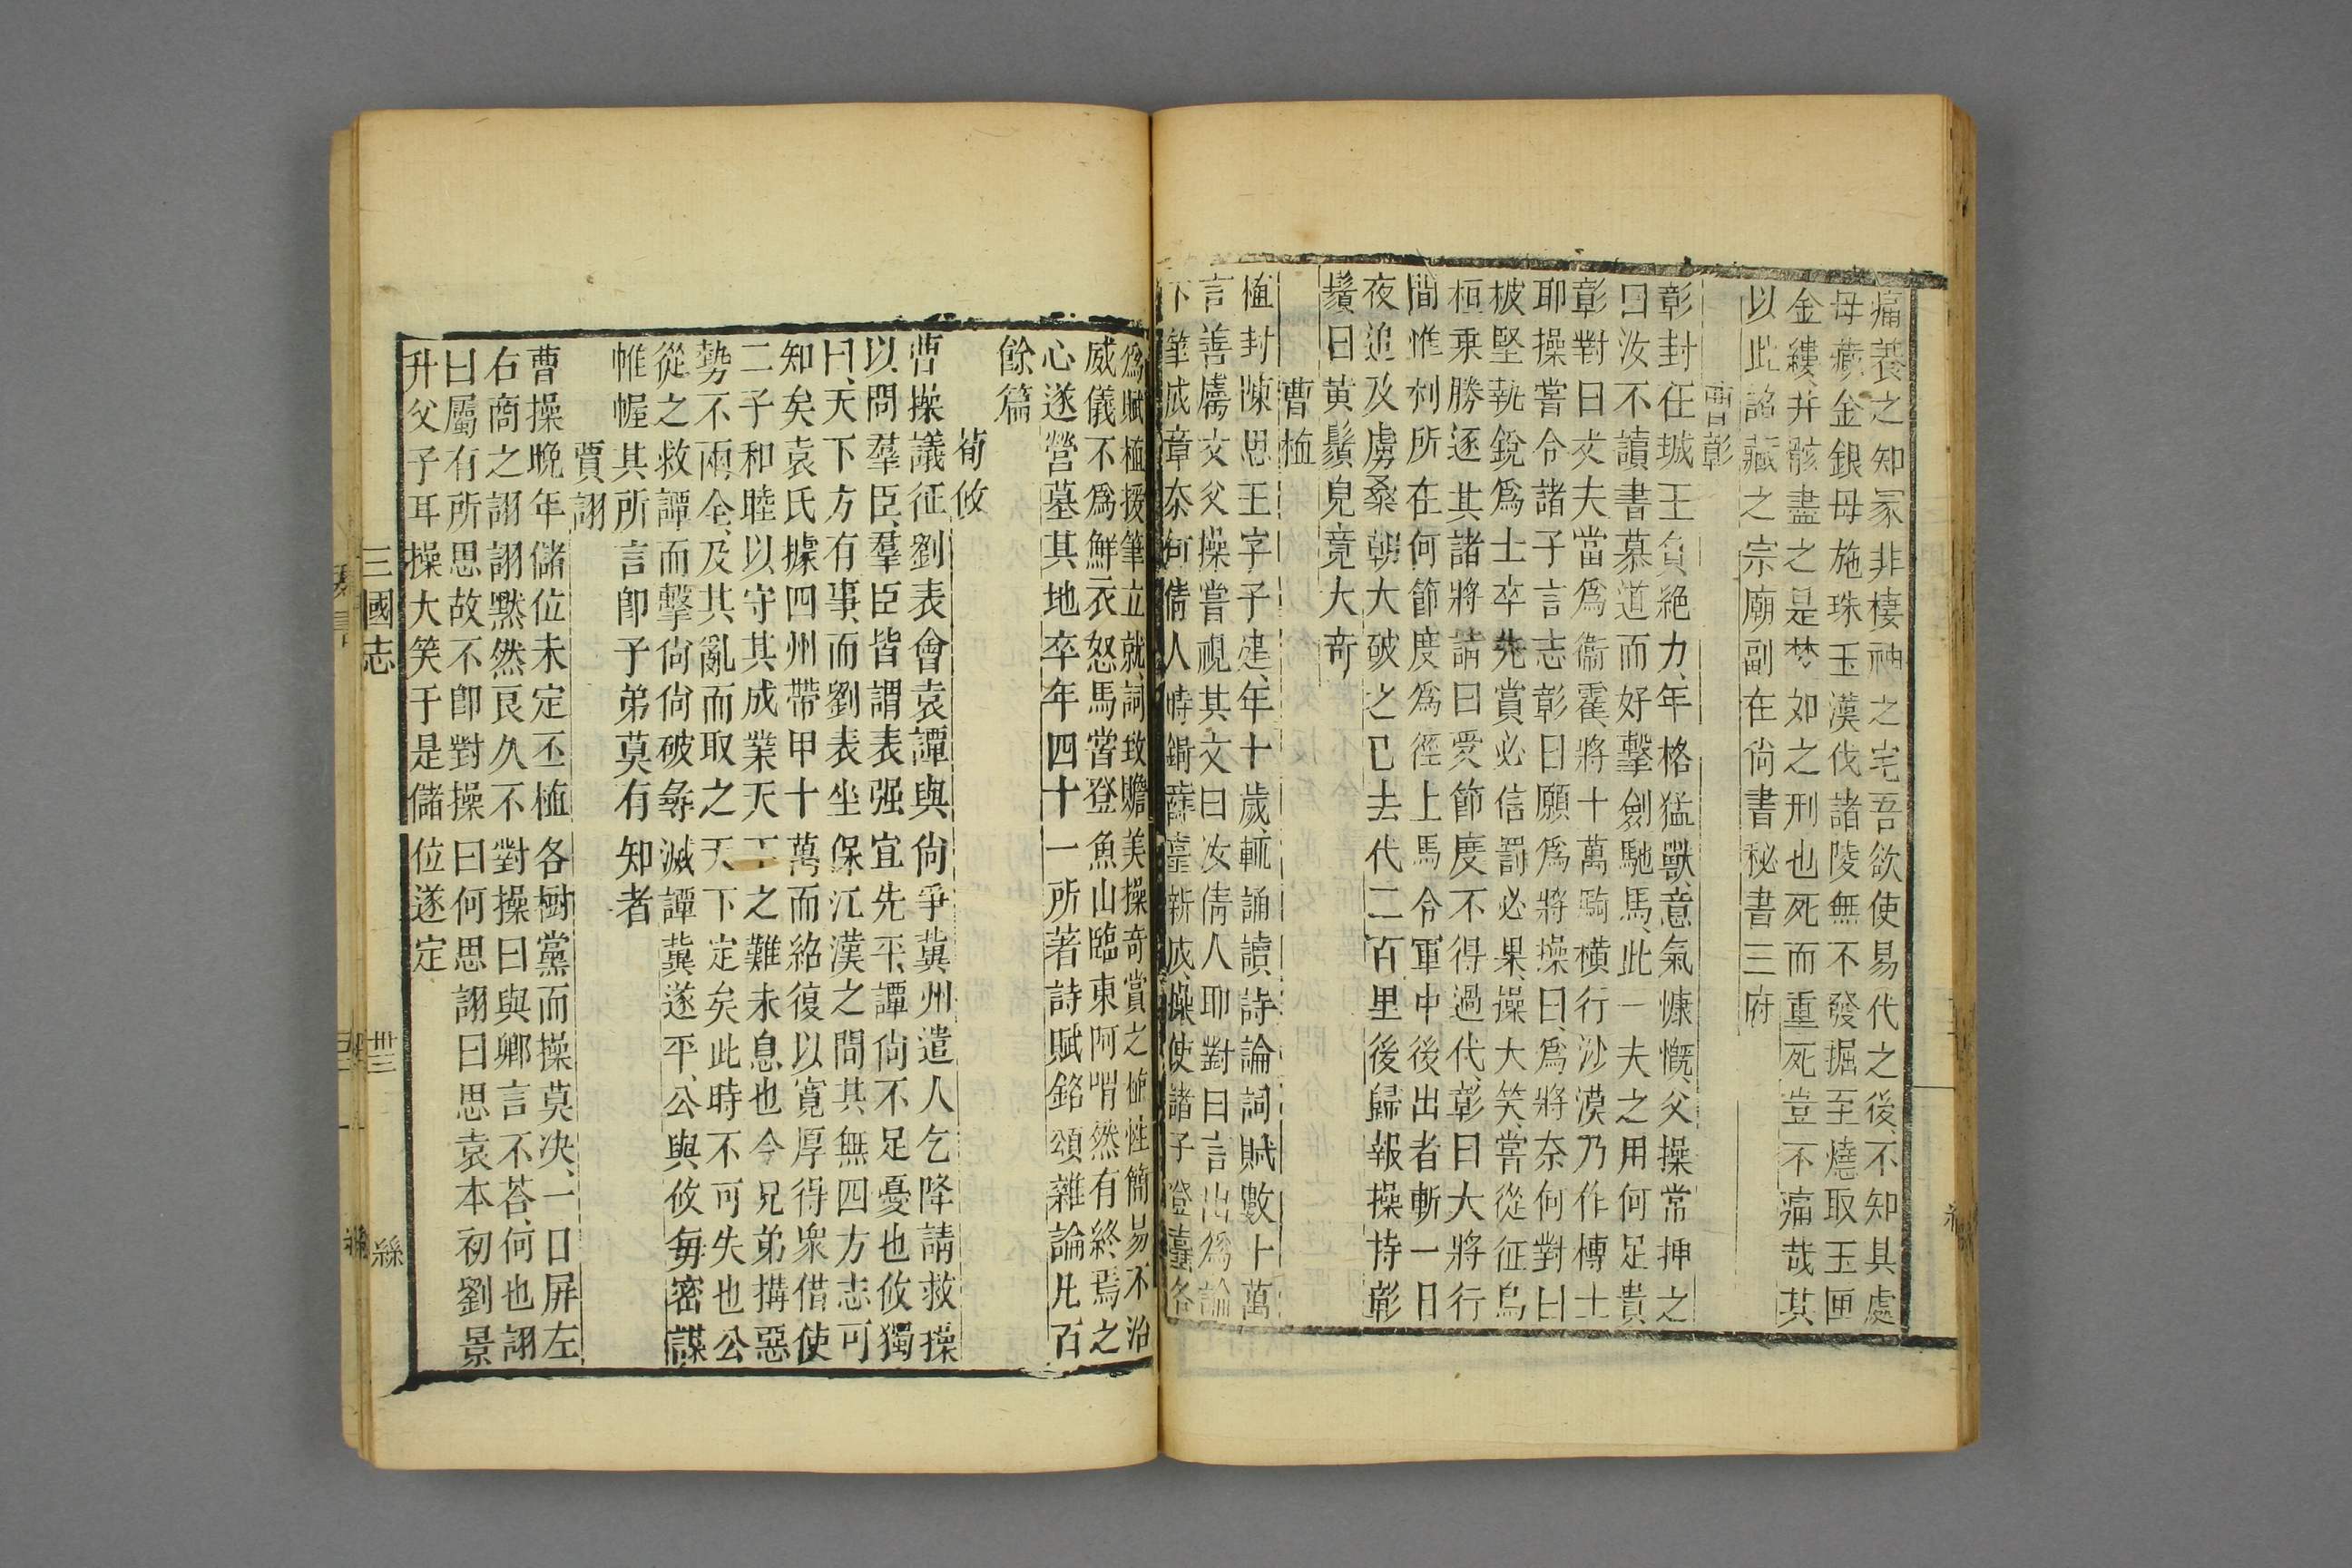 痛養之知冢非棲神之宅吾欲使易代之後不知其處
母藏金銀母施珠玉漢伐諸陵無不發掘至燒取玉匣
金縷并骸盡之是焚如之刑也死而重死豈不痛哉其
以此詔藏之宗廟副在尚書秘書三府
曹彰
彰封任城王負絶力年格猛獸意氣慷慨父操常抻之
曰汝不讀書慕道而好擊劍馳馬此一夫之用何足貴
彰對曰丈夫當爲衞霍將十萬騎横行沙漠乃作愽士
耶操嘗令諸子言志彰曰願爲將操曰爲將奈何對曰
披堅執銳爲士卒先賞必信罰必果操大笑嘗從征烏
桓乗勝逐其諸將請曰受節度不得過代彰曰大將行
間惟利所在何節度爲徑上馬令軍中後出者斬一日
夜追及虜桑乾大破之已去代二百里後歸報操持彰
鬚曰黄鬚兒竟大奇
曹植
植封陳思王字子建年十歲輒誦讀詩論詞賦數十萬
言善屬文父操嘗視其文曰汝倩人耶對曰言出爲論
下筆成章奈何倩人時銅雀臺新成操使諸子登臺各
爲賦植援筆立就詞致贍美操奇賞之植性簡易不治
威儀不爲鮮衣怒馬嘗登魚山臨東阿喟然有終焉之
心遂營墓其地卒年四十一所著詩賦銘頌雜論凡百
餘篇
荀攸
曹操議征劉表會袁譚與尚爭冀州遣人乞降請救操
以問羣臣羣臣皆謂表强宜先平譚尚不足憂也攸獨
曰天下方有事而劉表坐保江漢之間其無四方志可
知矣袁氏據四州帶甲十萬而紹復以寛厚得衆借使
二子和睦以守其成業天下之難未息也今兄弟搆惡
勢不兩全及其亂而取之天下定矣此時不可失也公
從之救譚而擊尚尚破尋滅譚冀遂平公與攸毎密謀
帷幄其所言卽子弟莫有知者
賈詡
曹操晚年儲位未定丕植各樹黨而操莫决一日屏左
右商之詡詡黙然良久不對操曰與卿言不荅何也詡
曰屬有所思故不卽對操曰何思詡曰思袁本初劉景
升父子耳操大笑于是儲位遂定
三國志
卅三